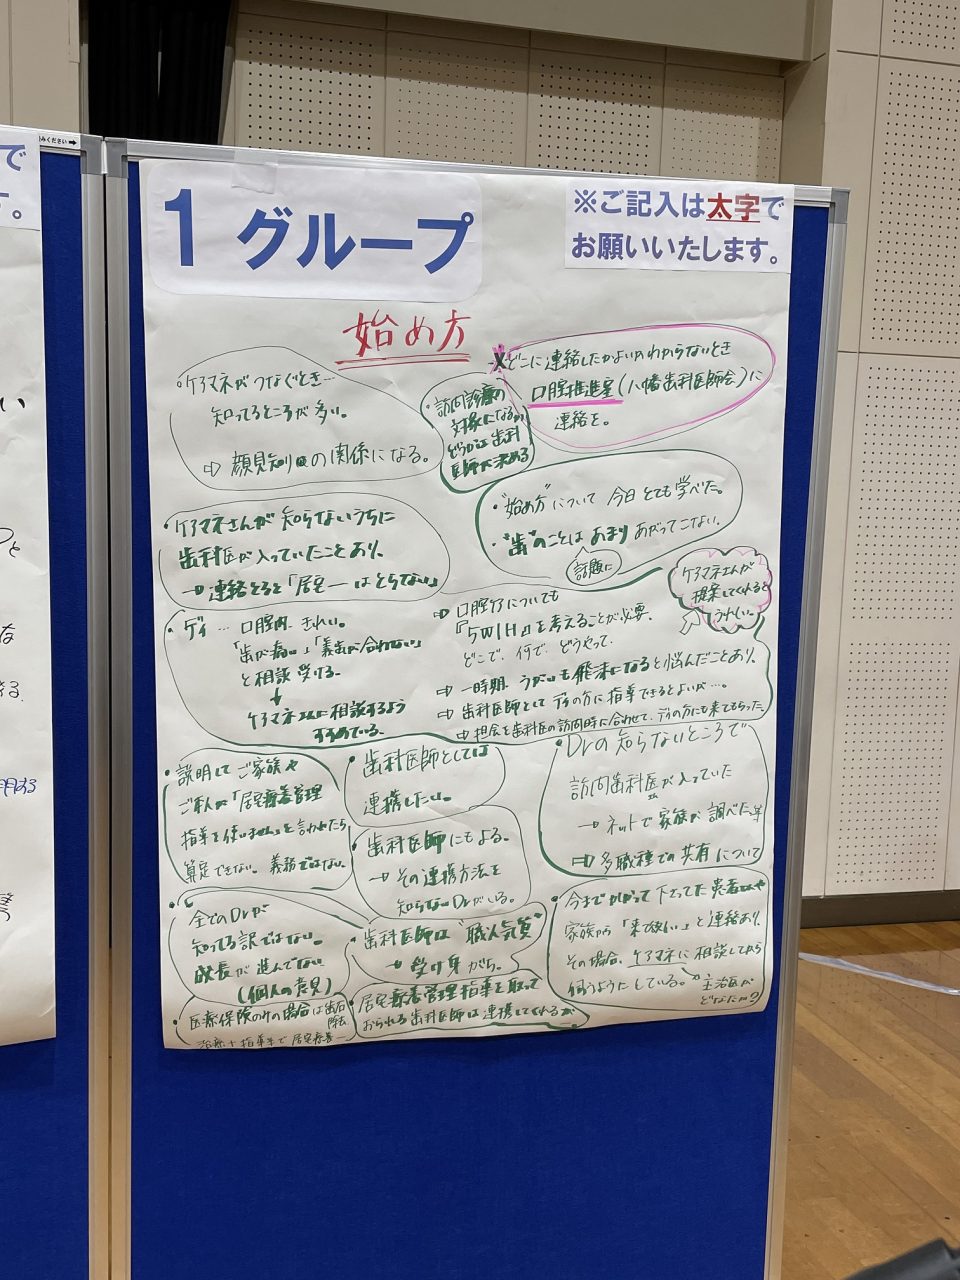 みください➡
1 グループ
※ご記入は太字で
お願いいたします。
始め方
ケアマネがつなぐとき…
知ってるところが多い。
⇨ 顔見知りの関係になる。
・訪問診療の
対象になるか
どうかは歯科
医師が決める
どこに連絡したかよいのわからないとき
口腔推進室(八幡歯科医師会)に
連絡を。
・"始め方"について 今日 とても学べた。
・"歯"のことは あまり あがってこない。
話題に
・ケアマネさんが 知らないうちに
歯科医が入っていたことあり、
→連絡とると「居宅―はとらない」
ケアマネさんが
提案してくれると
うれしい。
・デイ… 口腔内 きれい。
「歯が痛い」「義歯が合わない」
と相談 受ける。
↓
ケアマネさんに相談するよう
すすめている。
⇨ 口腔ケアについても
『5W1H』を考えることが必要。
どこで、何で、どうやって、
⇨ 一時期 うがいも飛沫になると悩んだことあり、
⇨ 歯科医師として デイの方に指導できるとよいが…。
⇨ 担会を歯科医の訪問時に合わせて、デイの方にも来てもらった。
・説明して ご家族や
ご本人が「居宅療養管理
指導を使いません」と言われたら
算定できない。義務ではない。
・歯科医師としては
連携したい。
・歯科医師にもよる。
→その連携方法を
知らないDrがいる。
・Drの知らないところで
訪問歯科医が入っていた
→ネットで家族が調べた等
⇨ 多職種での共有について
・全てのDrが
知ってる訳ではない。
成長が進んでない
(個人の意見)
・歯科医師は"職人気質"
→受け身がち。
・今まで かかって下さってた患者さんや
家族から「来て欲しい」と連絡あり。
その場合、ケアマネに相談してから
伺うようにしている。
主治医が
どなたか?
・医療保険のみの場合は歯石
除去
治療+指導まで 居宅療養―
・居宅療養管理指導を取って
おられる歯科医師は連携してくれるが